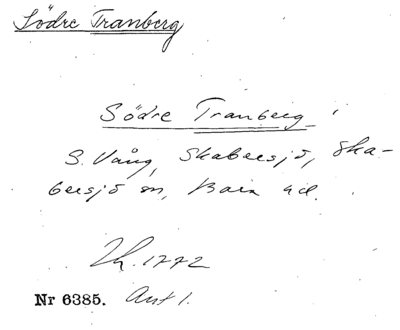 Södre Tranberg
Södre Tranberg
S. Vång, Skabersjö, Ska-
bersjö sn, Bara hd.
Lh. 1772
Nr 6385. Akt 1.